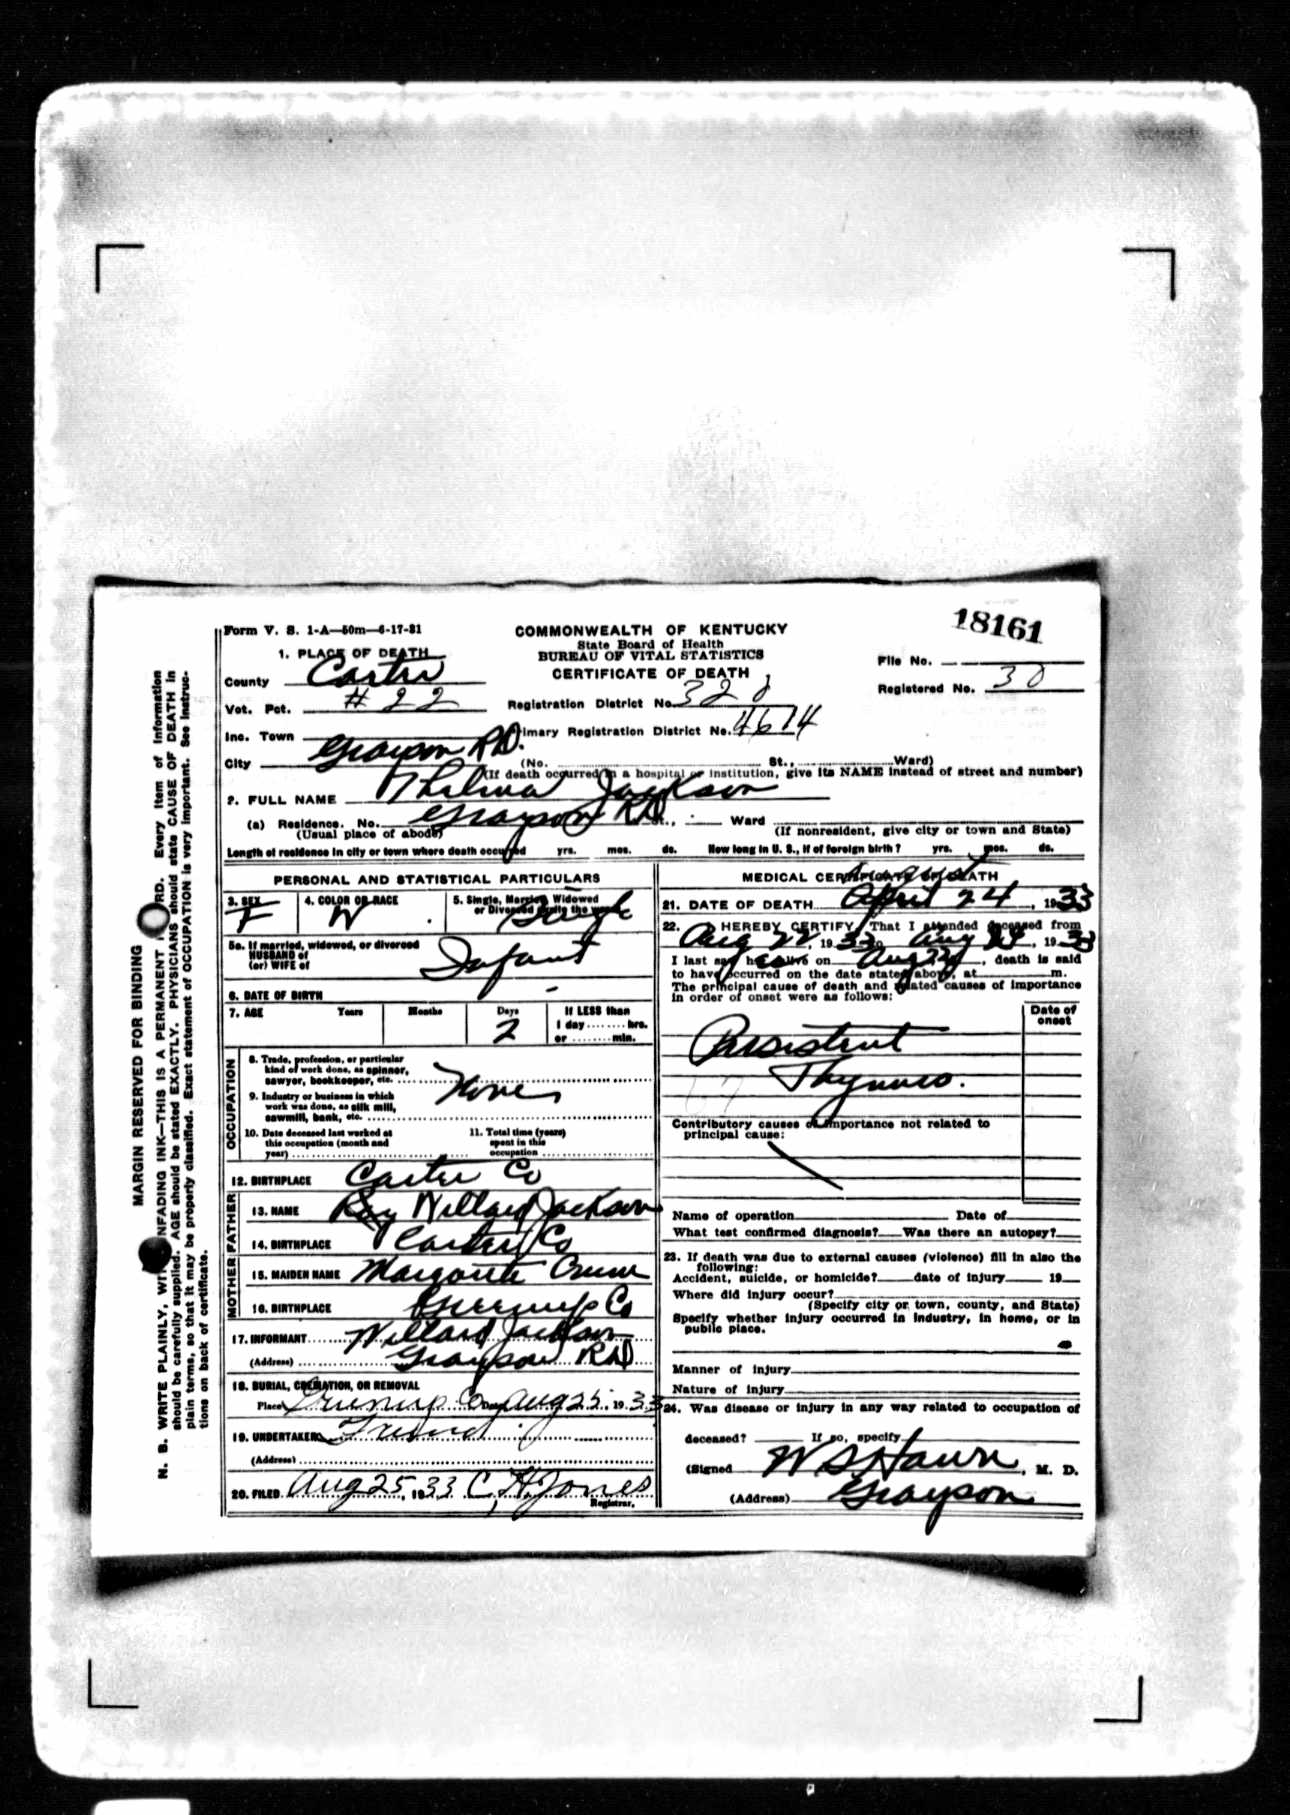 18161
Form V. S. 1-A—50m—6-17-31
COMMONWEALTH OF KENTUCKY
State Board of Health
BUREAU OF VITAL STATISTICS
CERTIFICATE OF DEATH
File No.
Registered No. 30
1. PLACE OF DEATH
County Carter
Vot. Pct. # 22
Registration District No.
Inc. Town
Primary Registration District No. 4614
City Grayson RD.
(No. St., Ward)
(If death occurred in a hospital or institution, give its NAME instead of street and number)
2. FULL NAME Thelma Jackson
(a) Residence. No. Grayson RD St., Ward
(Usual place of abode)
(If nonresident, give city or town and State)
Length of residence in city or town where death occurred yrs. mos. ds. How long in U. S., if of foreign birth? yrs. mos. ds.
PERSONAL AND STATISTICAL PARTICULARS
3. SEX F
4. COLOR OR RACE W
5. Single, Married, Widowed
or Divorced (write the word) Single
5a. If married, widowed, or divorced
HUSBAND of
(or) WIFE of
Infant
6. DATE OF BIRTH
7. AGE Years Months Days 2
If LESS than
1 day hrs.
or min.
OCCUPATION
8. Trade, profession, or particular
kind of work done, as spinner,
sawyer, bookkeeper, etc. None
9. Industry or business in which
work was done, as silk mill,
sawmill, bank, etc.
10. Date deceased last worked at
this occupation (month and
year)
11. Total time (years)
spent in this
occupation
12. BIRTHPLACE Carter Co
FATHER
13. NAME Roy Willard Jackson
14. BIRTHPLACE Carter Co
MOTHER
15. MAIDEN NAME Margarite
16. BIRTHPLACE Greenup Co
17. INFORMANT Willard Jackson
(Address) Grayson RD
18. BURIAL, CREMATION, OR REMOVAL
Place Greenup Co Date Aug 25, 1933
19. UNDERTAKER Friend
(Address)
20. FILED Aug 25, 1933 C. H. Jones
Registrar.
MEDICAL CERTIFICATE OF DEATH
August
21. DATE OF DEATH April 24, 1933
22. I HEREBY CERTIFY, That I attended deceased from
Aug 22, 1933 to Aug 24, 1933
I last saw her alive on Aug 22, death is said
to have occurred on the date stated above, at m.
The principal cause of death and related causes of importance
in order of onset were as follows:
Date of
onset
Persistent
Thymus.
Contributory causes of importance not related to
principal cause:
Name of operation Date of
What test confirmed diagnosis? Was there an autopsy?
23. If death was due to external causes (violence) fill in also the
following:
Accident, suicide, or homicide? date of injury 19
Where did injury occur?
(Specify city or town, county, and State)
Specify whether injury occurred in industry, in home, or in
public place.
Manner of injury
Nature of injury
24. Was disease or injury in any way related to occupation of
deceased? If so, specify
(Signed W S Hawn, M. D.
(Address) Grayson
MARGIN RESERVED FOR BINDING
N. B. WRITE PLAINLY, WITH UNFADING INK—THIS IS A PERMANENT RECORD. Every item of information
should be carefully supplied. AGE should be stated EXACTLY. PHYSICIANS should state CAUSE OF DEATH in
plain terms, so that it may be properly classified. Exact statement of OCCUPATION is very important. See instruc-
tions on back of certificate.